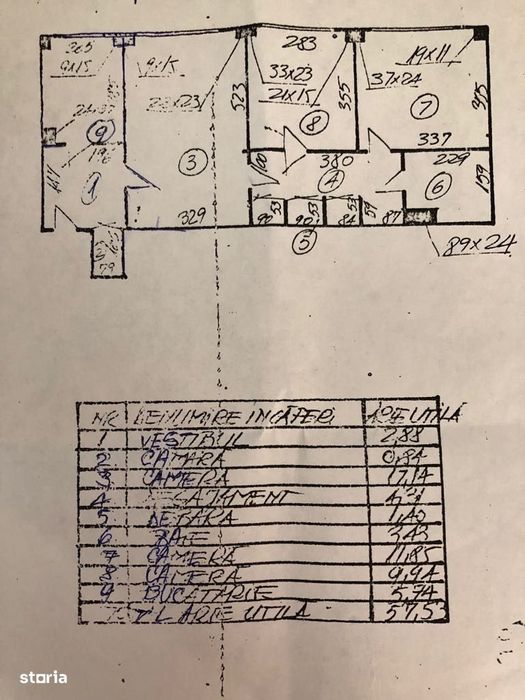 265
9x15
9x15
22x23
523
283
33x23
21x15
355
19x11
37x24
395
9
3
8
7
337
196
1
329
100
380
4
229
6
159
90
53
90
53
84
59
87
5
79
89x24
NR DENUMIRE INCAPERI ARIE UTILA
1 VESTIBUL 2,88
2 CAMARA 0,84
3 CAMERA 17,14
4
5 DEBARA 1,43
6 BAIE 3,43
7 CAMERA 11,85
8 CAMERA 9,94
9 BUCATARIE 5,74
ARIE UTILA 57,53
storia